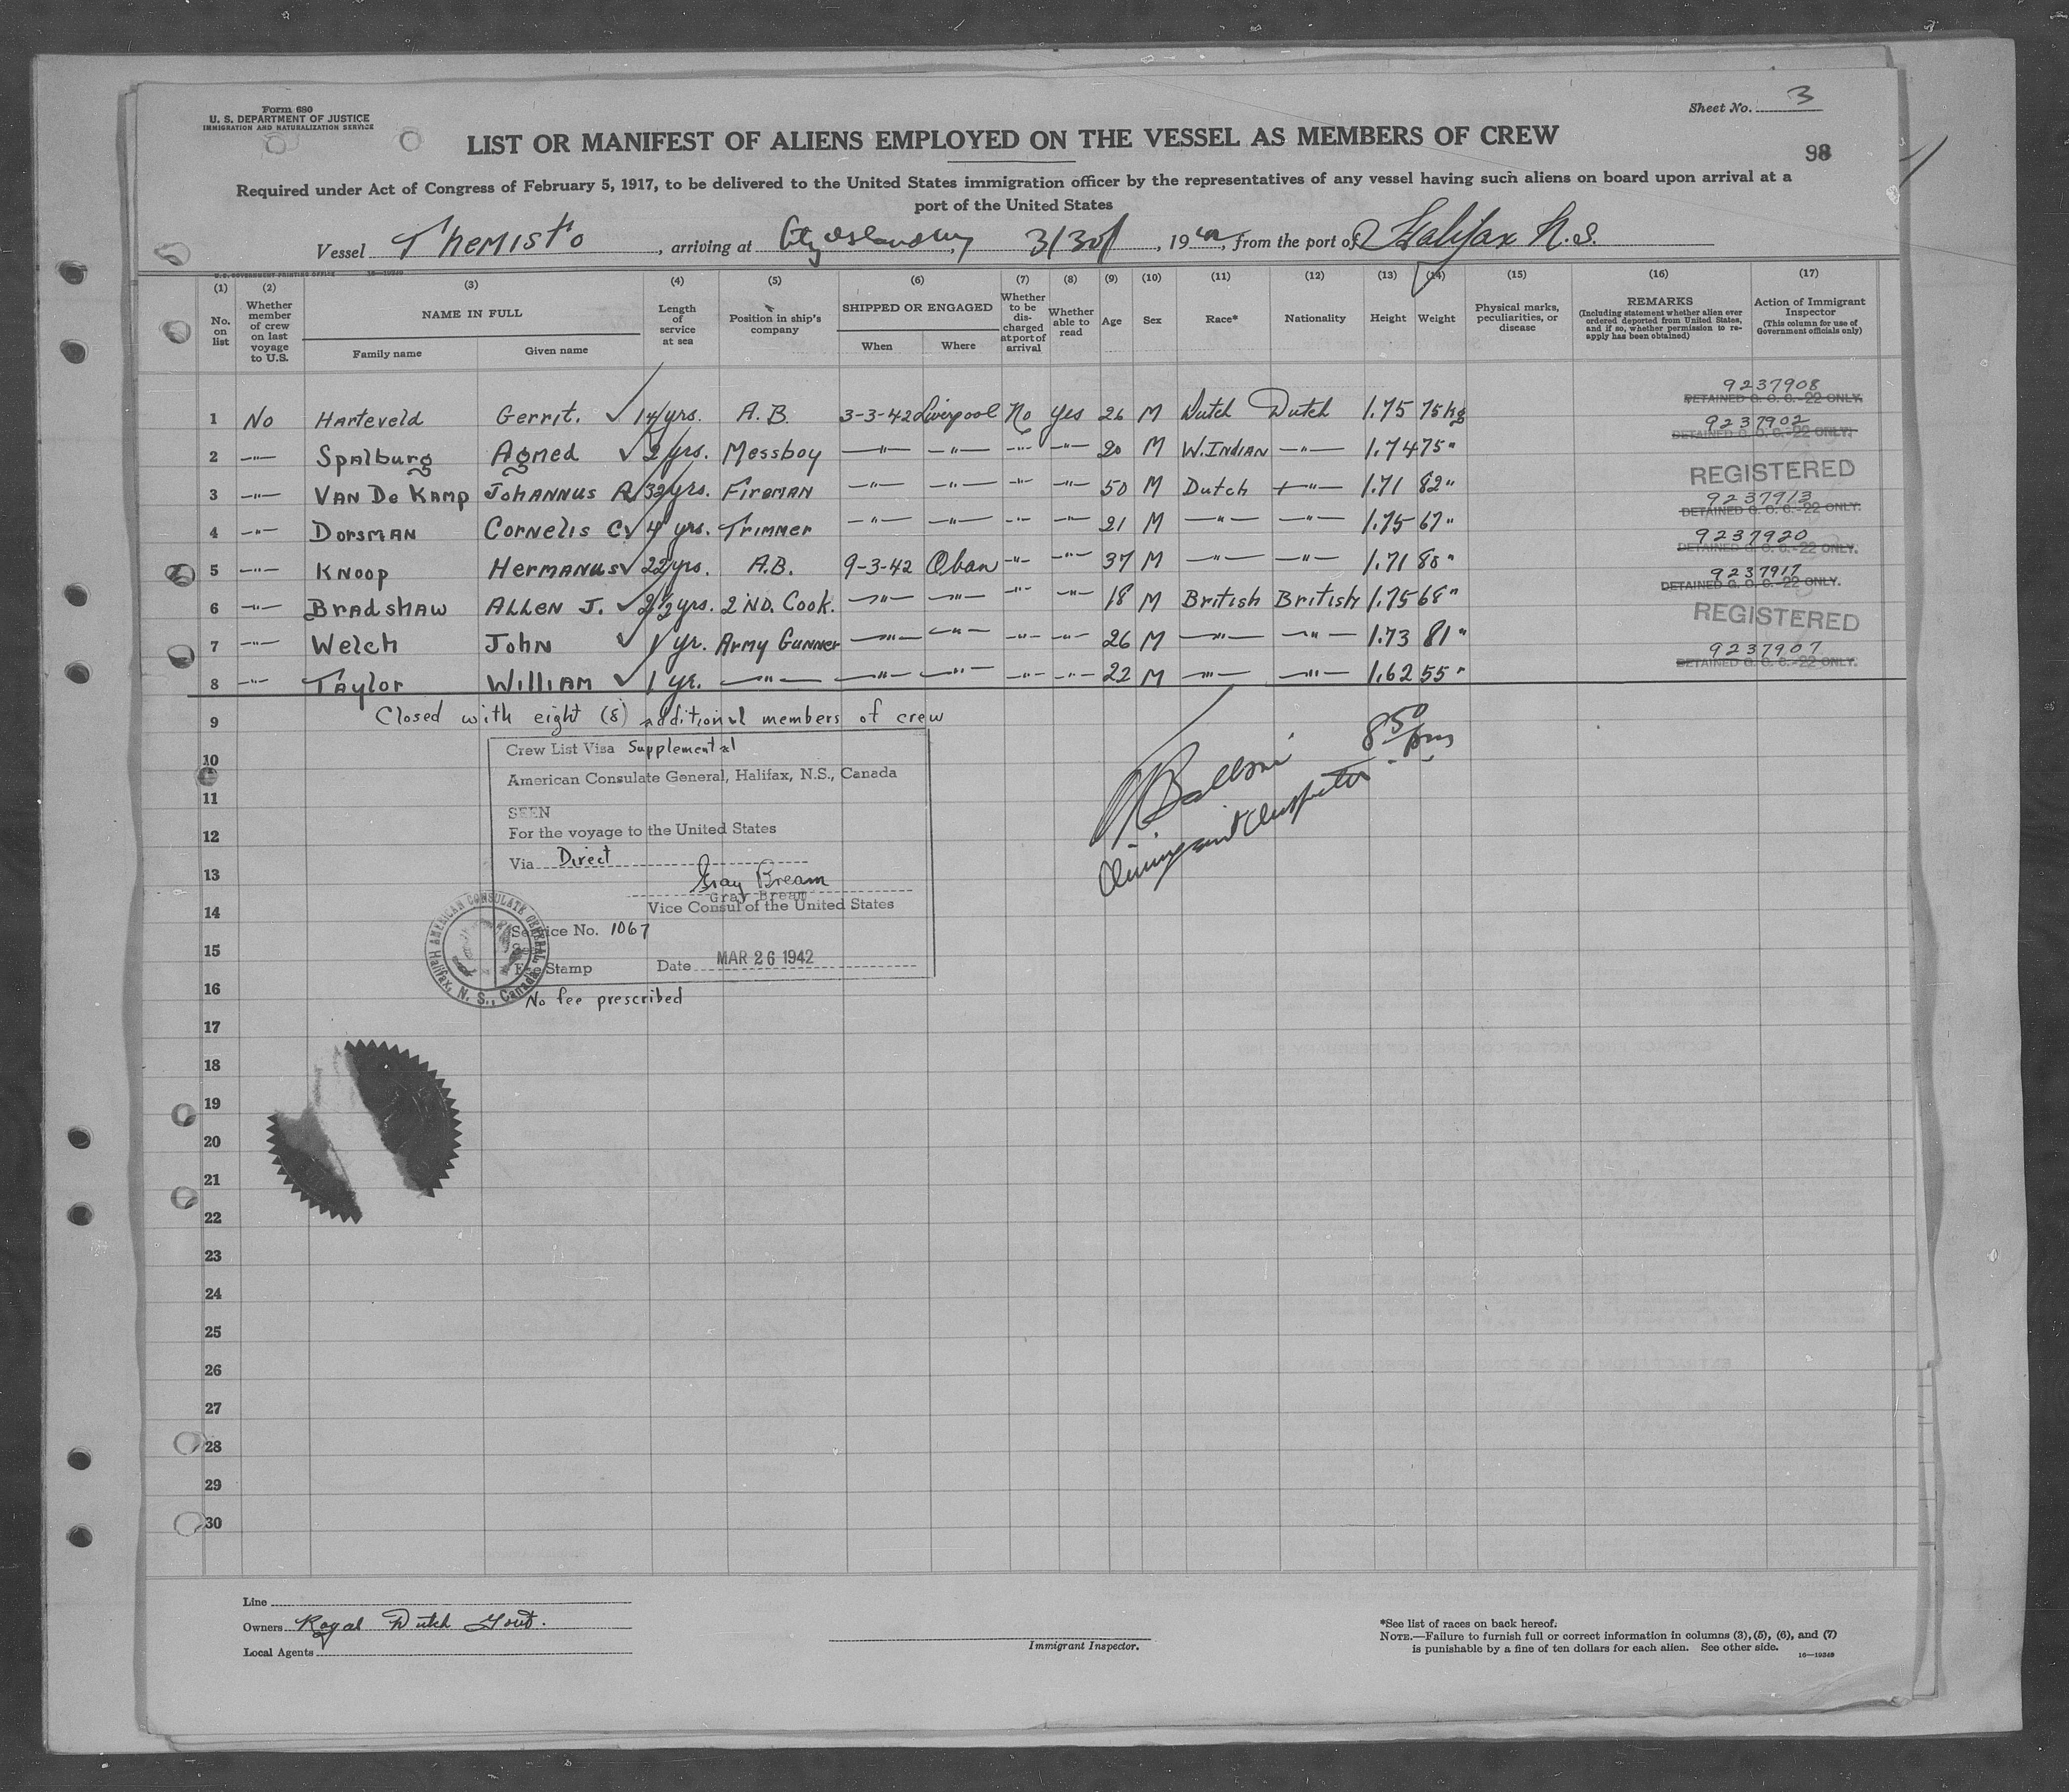 Form 680
U. S. DEPARTMENT OF JUSTICE
IMMIGRATION AND NATURALIZATION SERVICE
Sheet No. 3
LIST OR MANIFEST OF ALIENS EMPLOYED ON THE VESSEL AS MEMBERS OF CREW
98
Required under Act of Congress of February 5, 1917, to be delivered to the United States immigration officer by the representatives of any vessel having such aliens on board upon arrival at a
port of the United States
Vessel Themisto, arriving at City Island NY 3/30, 1942, from the port of Halifax N.S.
U.S. GOVERNMENT PRINTING OFFICE 16—19349
(1) (2) (3) (4) (5) (6) (7) (8) (9) (10) (11) (12) (13) (14) (15) (16) (17)
No. on list
Whether member of crew on last voyage to U.S.
NAME IN FULL
Family name
Given name
Length of service at sea
Position in ship's company
SHIPPED OR ENGAGED
When
Where
Whether to be discharged at port of arrival
Whether able to read
Age
Sex
Race*
Nationality
Height
Weight
Physical marks, peculiarities, or disease
REMARKS
(Including statement whether alien ever ordered deported from United States, and if so, whether permission to reapply has been obtained)
Action of Immigrant Inspector
(This column for use of Government officials only)
9237908
DETAINED G. O. C.-22 ONLY.
1 No Harteveld Gerrit. ✓ 14 yrs. A.B. 3-3-42 Liverpool No Yes 26 M Dutch Dutch 1.75 75 kg
9237902
DETAINED G. O. C.-22 ONLY.
2 —"— Spalburg Agmed ✓ 2 yrs. Messboy —"— —"— —"— —"— 20 M W.Indian —"— 1.74 75 "
REGISTERED
3 —"— Van De Kamp Johannus A ✓ 32 yrs. Fireman —"— —"— —"— —"— 50 M Dutch —"— 1.71 82 "
9237913
DETAINED G. O. C.-22 ONLY.
4 —"— Dorsman Cornelis C ✓ 4 yrs. Trimmer —"— —"— —"— —"— 21 M —"— —"— 1.75 67 "
9237920
DETAINED G. O. C.-22 ONLY.
5 —"— Knoop Hermanus ✓ 22 yrs. A.B. 9-3-42 Oban —"— —"— 37 M —"— —"— 1.71 80 "
9237917
DETAINED G. O. C.-22 ONLY.
6 —"— Bradshaw Allen J. ✓ 2 1/2 yrs. 2nd. Cook. —"— —"— —"— —"— 18 M British British 1.75 68 "
REGISTERED
7 —"— Welch John ✓ 1 yr. Army Gunner —"— —"— —"— —"— 26 M —"— —"— 1.73 81 "
9237907
DETAINED G. O. C.-22 ONLY.
8 —"— Taylor William ✓ 1 yr. —"— —"— —"— —"— —"— 22 M —"— —"— 1.62 55 "
9 Closed with eight (8) additional members of crew
Crew List Visa Supplemental
10
American Consulate General, Halifax, N.S., Canada
11
SEEN
12
For the voyage to the United States
Via Direct
13
Gray Bream
Gray Bream
14
Vice Consul of the United States
Service No. 1067
15
Fee Stamp Date MAR 26 1942
16
No fee prescribed
AMERICAN CONSULATE GENERAL, Halifax, N. S., Canada
8 50 pm
Immigrant Inspector
17
18
19
20
21
22
23
24
25
26
27
28
29
30
Line
Owners Royal Dutch Govt.
Local Agents
Immigrant Inspector.
*See list of races on back hereof.
NOTE.—Failure to furnish full or correct information in columns (3), (5), (6), and (7)
is punishable by a fine of ten dollars for each alien. See other side.
16—19349